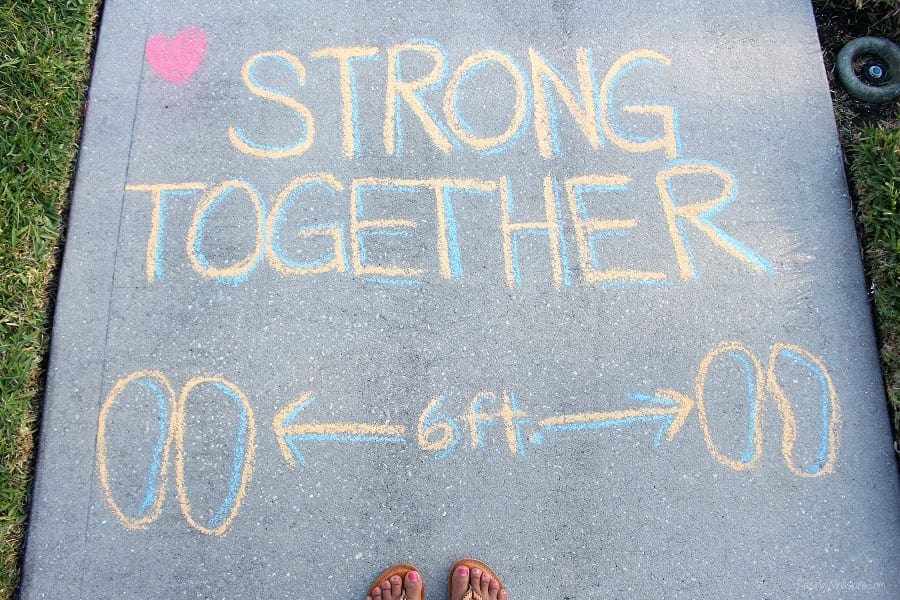 STRONG
TOGETHER
6ft.